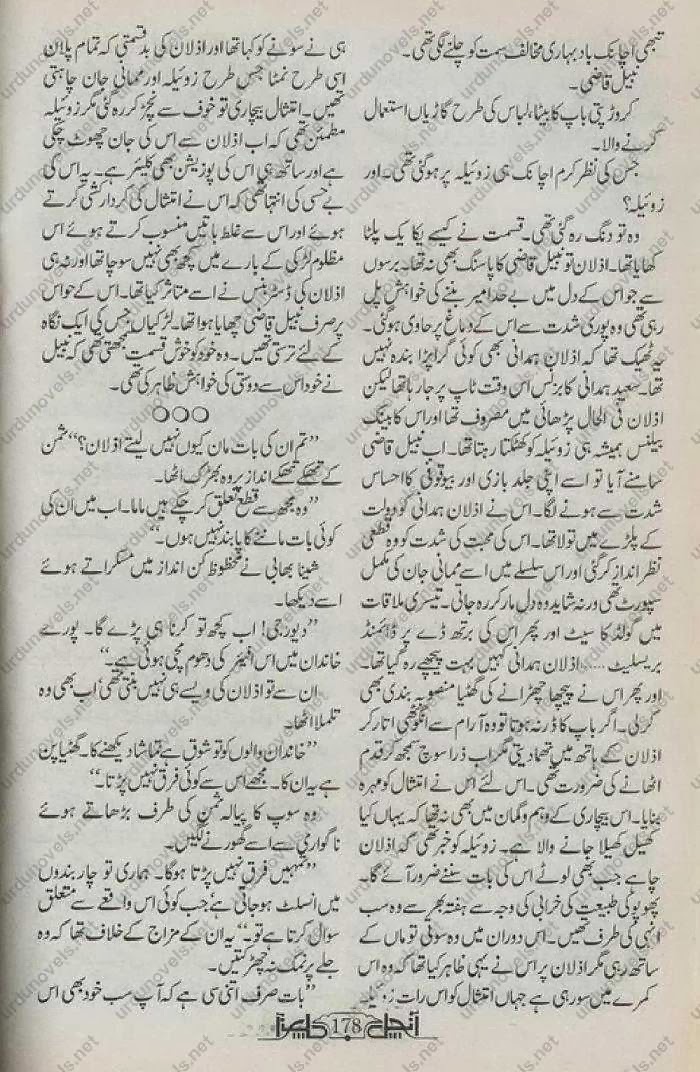 تبھی اچانک باد بہاری مخالف سمت کو چلنے لگی تھی۔
نبیل قاضی۔
کروڑ پتی باپ کا بیٹا، لباس کی طرح گاڑیاں استعمال
کرنے والا۔
جس کی نظر کرم اچانک ہی زوئیلہ پر ہوگئی تھی۔ اور
زوئیلہ؟
وہ تو دنگ رہ گئی تھی۔ قسمت نے کیسے یکایک پلٹا
کھایا تھا۔ اذلان تو نبیل قاضی کا پاسنگ بھی نہ تھا۔ برسوں
سے جو اس کے دل میں بے حد امیر بننے کی خواہش پل
رہی تھی وہ پوری شدت سے اس کے دماغ پر حاوی ہوگئی۔
یہ ٹھیک تھا کہ اذلان ہمدانی بھی کوئی گرا پڑا بندہ نہیں
تھا۔ سعید ہمدانی کا بزنس اس وقت ٹاپ پر جارہا تھا لیکن
اذلان فی الحال پڑھائی میں مصروف تھا اور اس کا بینک
بیلنس ہمیشہ ہی زوئیلہ کو کھٹکتا رہتا تھا۔ اب نبیل قاضی
سامنے آیا تو اسے اپنی جلد بازی اور بیوقوفی کا احساس
شدت سے ہونے لگا۔ اس نے اذلان ہمدانی کو دولت
کے پلڑے میں تولا تھا۔ اس کی محبت کی شدت کو وہ قطعی
نظر انداز کرگئی اور اس سلسلے میں اسے ممانی جان کی مکمل
سپورٹ تھی ورنہ شاید وہ دل مار کر رہ جاتی۔ تیسری ملاقات
میں گولڈ کا سیٹ اور پھر اس کی برتھ ڈے پر ڈائمنڈ
بریسلیٹ...... اذلان ہمدانی کہیں بہت پیچھے رہ گیا تھا۔
اور پھر اس نے پیچھا چھڑانے کی گھٹیا منصوبہ بندی بھی
کرلی۔ اگر باپ کا ڈر نہ ہوتا تو وہ آرام سے انگوٹھی اتار کر
اذلان کے ہاتھ میں تھما دیتی مگر اب ذرا سوچ سمجھ کر قدم
اٹھانے کی ضرورت تھی۔ اس لئے اس نے امتثال کو مہرہ
بنایا۔ اس بیچاری کے وہم و گمان میں بھی نہ تھا کہ یہاں کیا
کھیل کھیلا جانے والا ہے۔ زوئیلہ کو خبر تھی کہ اذلان
چاہے جب بھی لوٹے اس کی بات سننے ضرور آئے گا۔
پھوپو کی طبیعت کی خرابی کی وجہ سے ہفتہ بھر سے وہ سب
انہی کی طرف تھیں۔ اس دوران میں وہ سوئی تو ماں کے
ساتھ رہی مگر اذلان پر اس نے یہی ظاہر کیا تھا کہ وہ اس
کمرے میں سو رہی ہے جہاں امتثال کو اس رات زوئیلہ
ہی نے سونے کو کہا تھا اور اذلان کی بدقسمتی کہ تمام پلان
اسی طرح نمٹا جس طرح زوئیلہ اور ممانی جان چاہتی
تھیں۔ امتثال بیچاری تو خوف سے نچڑ کر رہ گئی مگر زوئیلہ
مطمئن تھی کہ اب اذلان سے اس کی جان چھوٹ چکی
ہے اور ساتھ ہی اس کی پوزیشن بھی کلیئر ہے۔ یہ اس کی
بے حسی کی انتہا تھی کہ اس نے امتثال کی کردار کشی کرتے
ہوئے اور اس سے غلط باتیں منسوب کرتے ہوئے اس
مظلوم لڑکی کے بارے میں کچھ بھی نہیں سوچا تھا اور نہ ہی
اذلان کی ڈسٹربنس نے اسے متاثر کیا تھا۔ اس کے حواس
پر صرف نبیل قاضی چھایا ہوا تھا۔ لڑکیاں جس کی ایک نگاہ
کے لئے ترستی تھیں۔ وہ خود کو خوش قسمت سمجھتی تھی کہ نبیل
نے خود اس سے دوستی کی خواہش ظاہر کی تھی۔
○○○
”تم ان کی بات مان کیوں نہیں لیتے اذلان؟“ ثمن
کے تھکے تھکے انداز پر وہ بھڑک اٹھا۔
”وہ مجھ سے قطع تعلق کرچکے ہیں ماما۔ اب میں ان کی
کوئی بات ماننے کا پابند نہیں ہوں۔“
شینا بھابی نے محظوظ کن انداز میں مسکراتے ہوئے
اسے دیکھا۔
”دیور جی! اب کچھ تو کرنا ہی پڑے گا۔ پورے
خاندان میں اس افیئر کی دھوم مچی ہوئی ہے۔“
ان سے تو اذلان کی ویسے ہی نہیں بنتی تھی اب بھی وہ
تلملا اٹھا۔
”خاندان والوں کو تو شوق ہے تماشا دیکھنے کا۔ گھٹیا پن
ہے یہ ان کا۔ مجھے اس سے کوئی فرق نہیں پڑتا۔“
وہ سوپ کا پیالہ ثمن کی طرف بڑھاتے ہوئے
ناگواری سے اسے گھورنے لگیں۔
”تمہیں فرق نہیں پڑتا ہوگا۔ ہماری تو چار بندوں
میں انسلٹ ہوجاتی ہے جب کوئی اس واقعے سے متعلق
سوال کرتا ہے تو۔“ یہ ان کے مزاج کے خلاف تھا کہ وہ
جلے پر نمک نہ چھڑکتیں۔
”بات صرف اتنی سی ہے کہ آپ سب خود بھی اس
آنچل 178
urdunovels.net